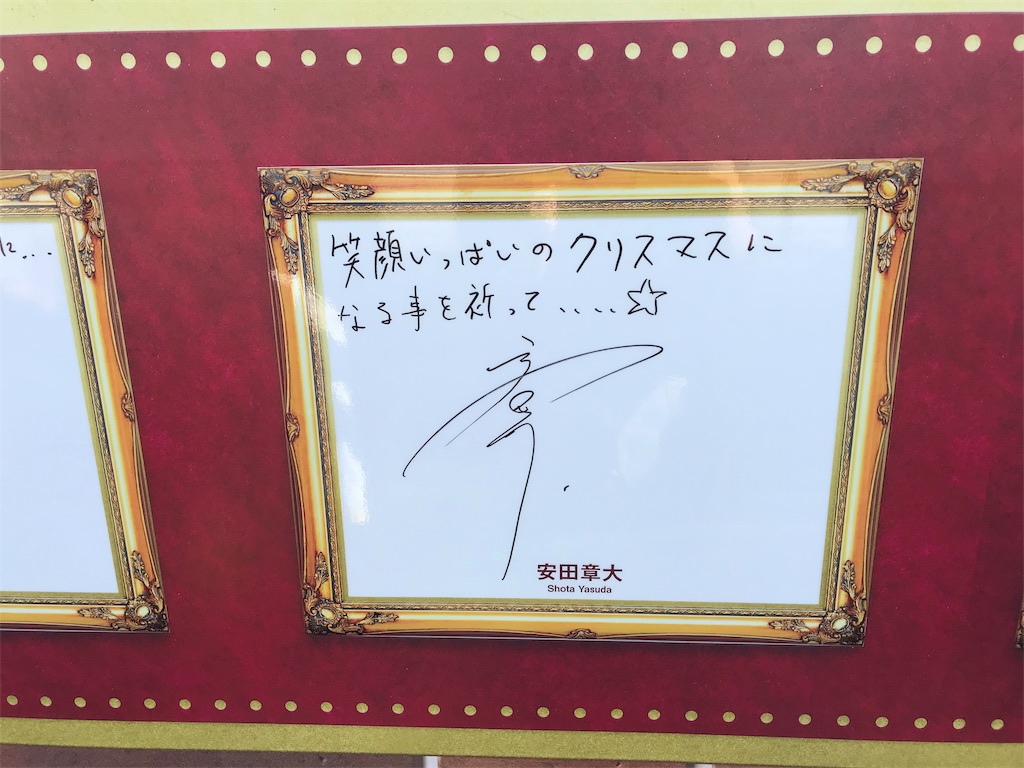 に...
笑顔いっぱいのクリスマスに
なる事を祈って....☆
章
安田章大
Shota Yasuda